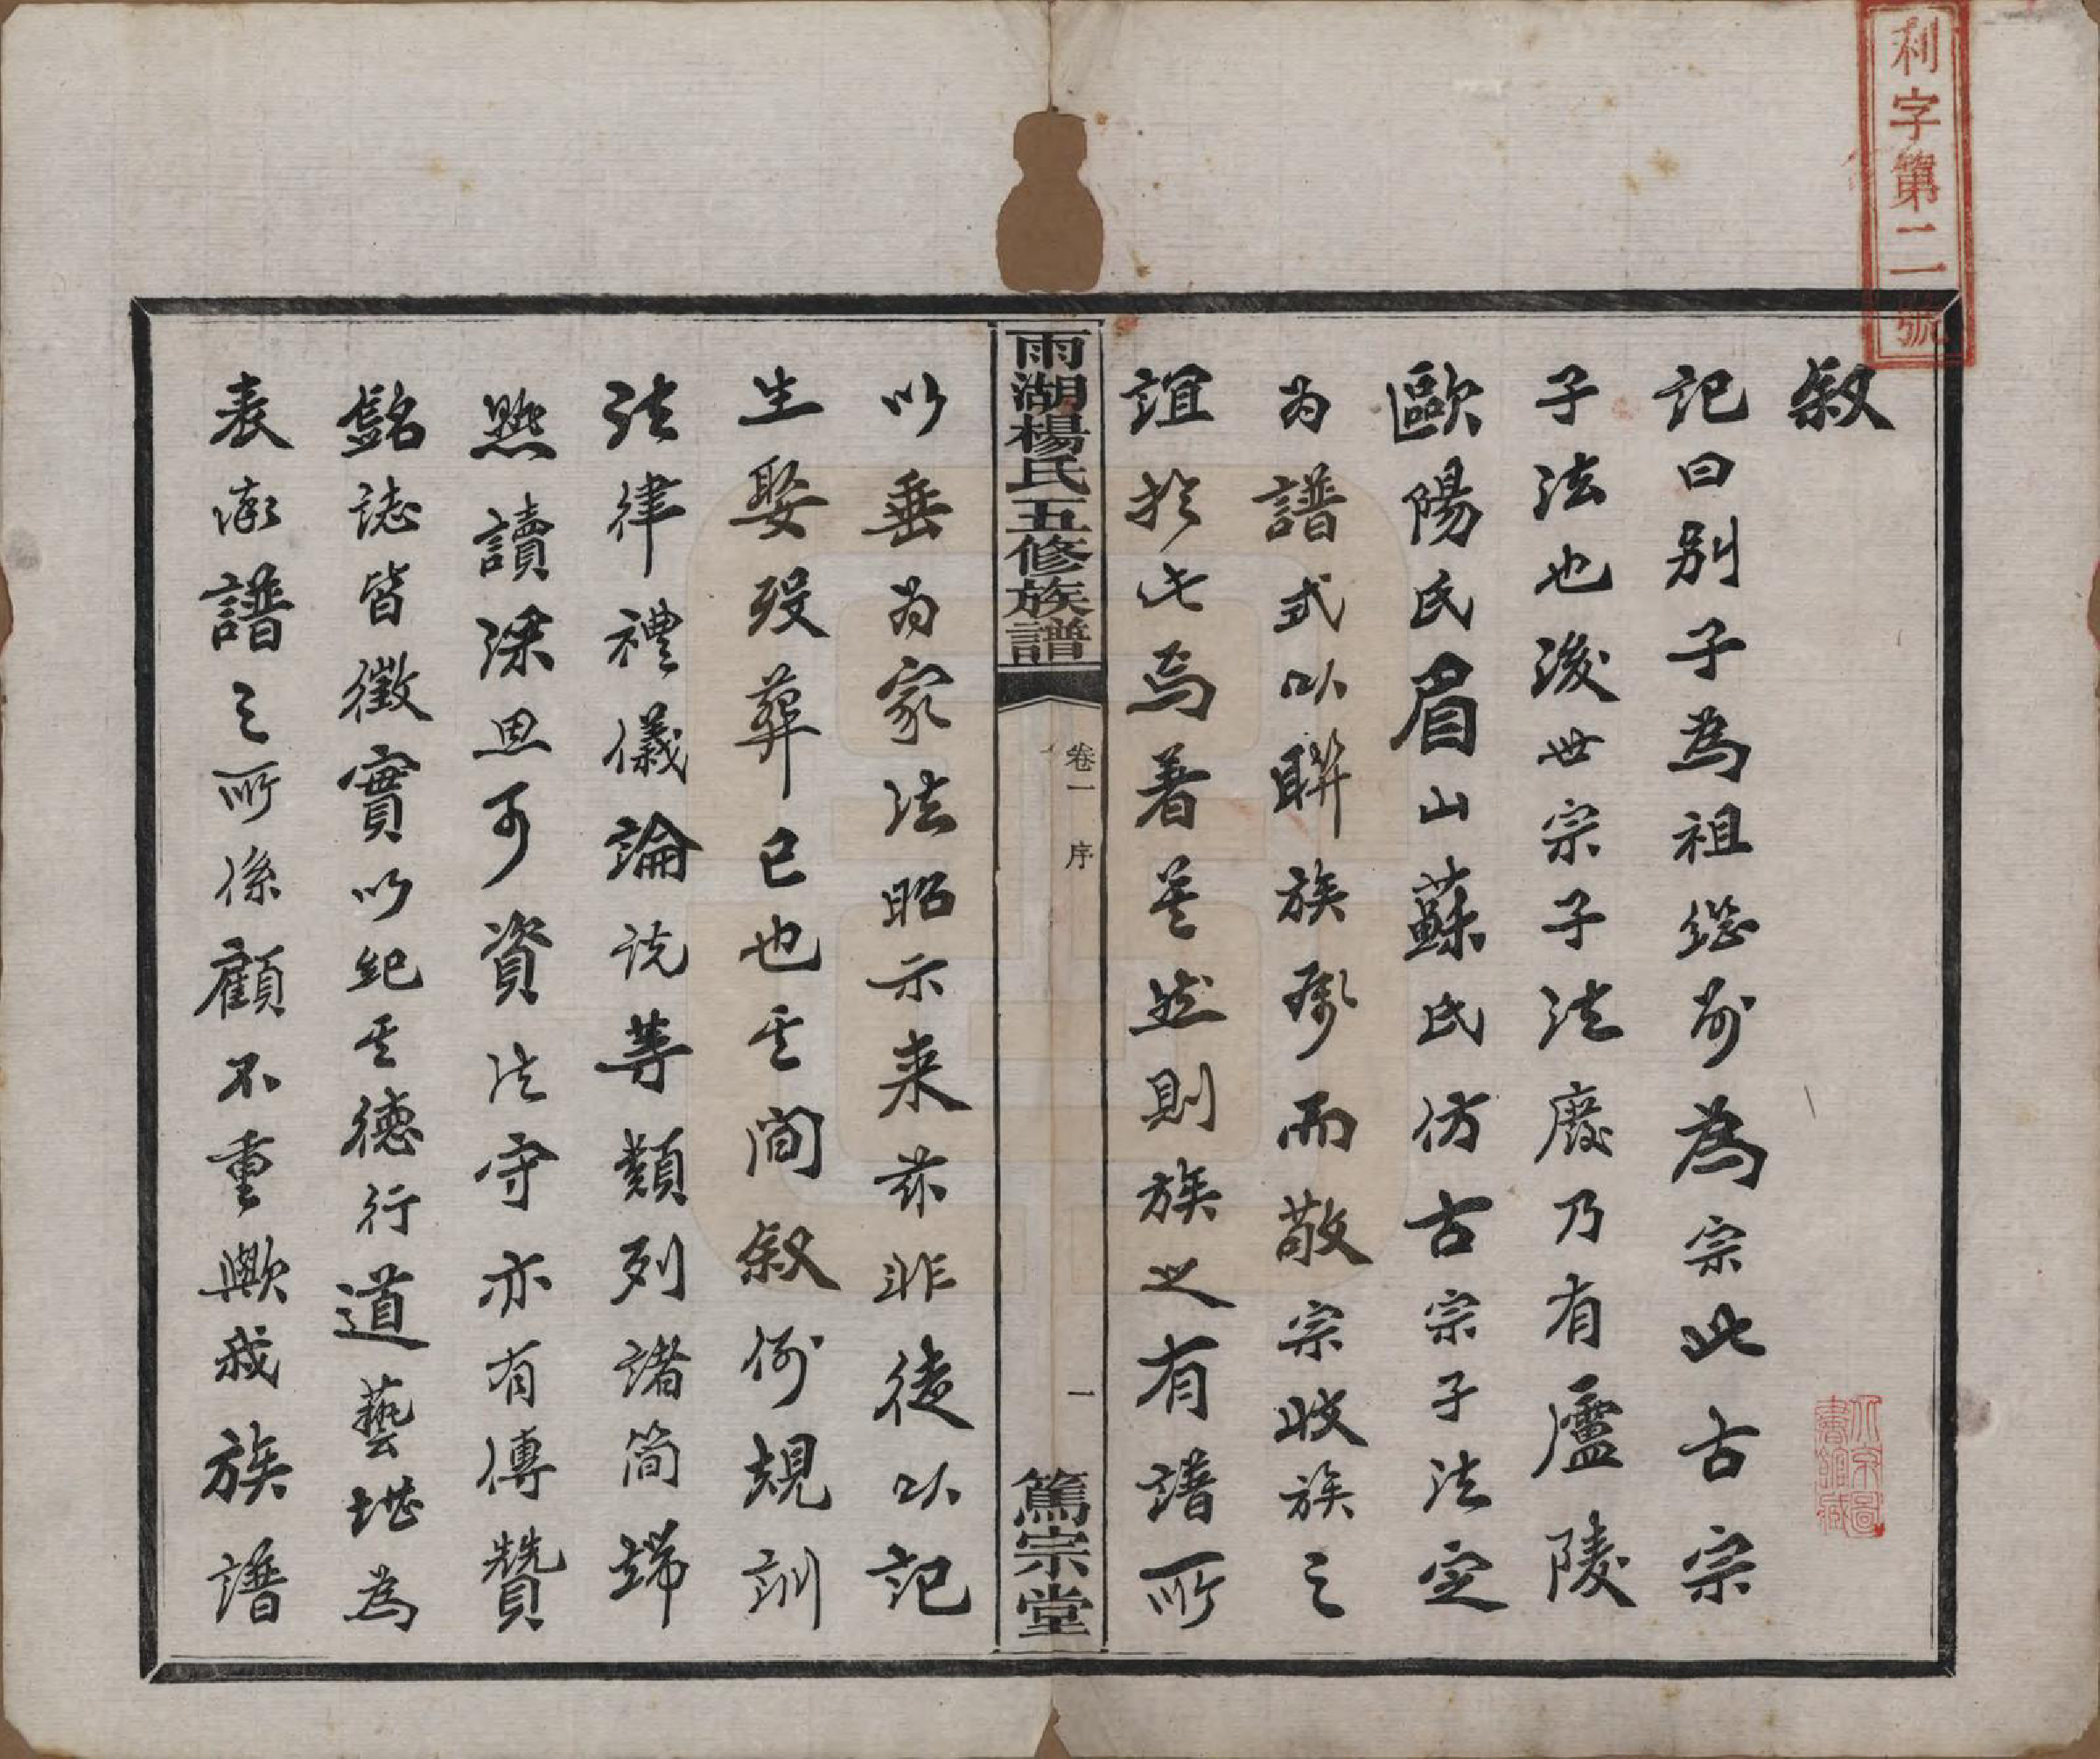 利字第二號
敘
記曰別子為祖繼別為宗此古宗
子法也後世宗子法廢乃有廬陵
歐陽氏眉山蘇氏仿古宗子法定
為譜式以聯族系而敬宗收族之
誼於此焉著矣然則族之有譜所
雨湖楊氏五修族譜
卷一 序
一
篤宗堂
以垂為家法昭示來茲非徒以記
生娶歿葬已也其間敘例規訓
法律禮儀論說等類列諸簡端
熟讀深思可資法守亦有傳贊
銘誌皆徵實以紀其德行道藝堪為
表漸譜之所係顧不重歟我族譜